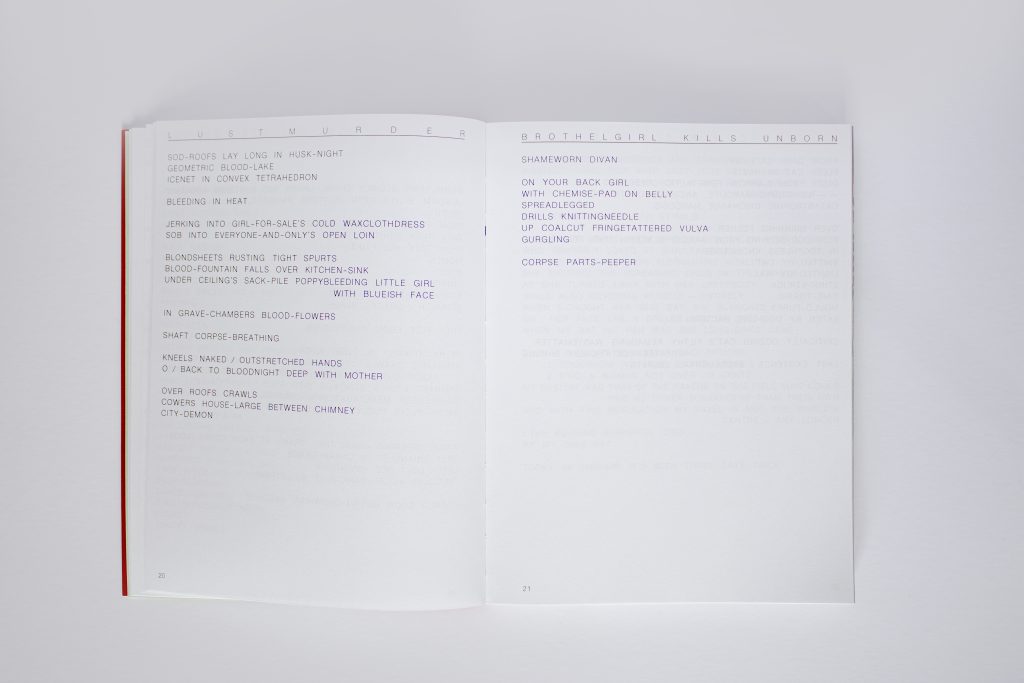 LUSTMURDER
SOD-ROOFS LAY LONG IN HUSK-NIGHT
GEOMETRIC BLOOD-LAKE
ICENET IN CONVEX TETRAHEDRON
BLEEDING IN HEAT
JERKING INTO GIRL-FOR-SALE'S COLD WAXCLOTHDRESS
SOB INTO EVERYONE-AND-ONLY'S OPEN LOIN
BLONDSHEETS RUSTING TIGHT SPURTS
BLOOD-FOUNTAIN FALLS OVER KITCHEN-SINK
UNDER CEILING'S SACK-PILE POPPYBLEEDING LITTLE GIRL
WITH BLUEISH FACE
IN GRAVE-CHAMBERS BLOOD-FLOWERS
SHAFT CORPSE-BREATHING
KNEELS NAKED / OUTSTRETCHED HANDS
O / BACK TO BLOODNIGHT DEEP WITH MOTHER
OVER ROOFS CRAWLS
COWERS HOUSE-LARGE BETWEEN CHIMNEY
CITY-DEMON
20
BROTHELGIRL KILLS UNBORN
SHAMEWORN DIVAN
ON YOUR BACK GIRL
WITH CHEMISE-PAD ON BELLY
SPREADLEGGED
DRILLS KNITTINGNEEDLE
UP COALCUT FRINGETATTERED VULVA
GURGLING
CORPSE PARTS-PEEPER
21